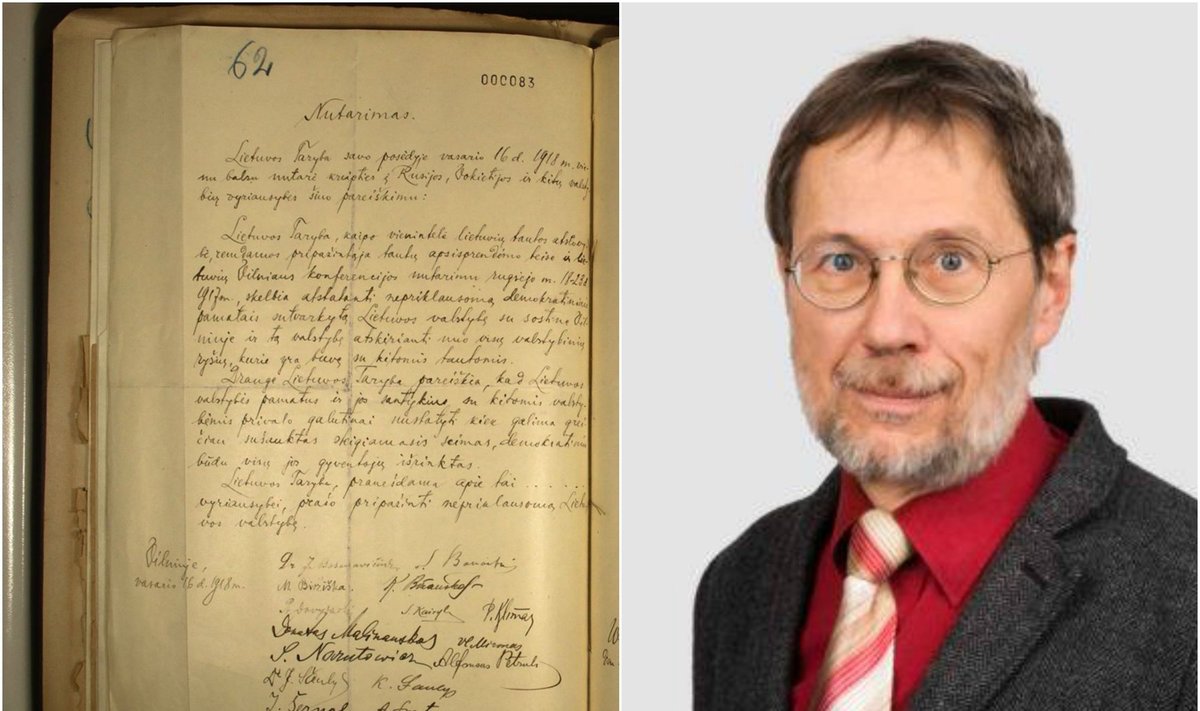 62
000083
Nutarimas.
Lietuvos Taryba savo posėdyje vasario 16 d. 1918 m. vie-
nu balsu nutarė kreipties į Rusijos, Vokietijos ir kitų valsty-
bių vyriausybes šiuo pareiškimu:
Lietuvos Taryba, kaipo vienintelė lietuvių tautos atstovy-
bė, remdamos pripažintąja tautų apsisprendimo teise ir lie-
tuvių Vilniaus konferencijos nutarimu rugsėjo m. 18-23 d.
1917 m., skelbia atstatanti nepriklausomą demokratiniais
pamatais sutvarkytą Lietuvos valstybę su sostine Vil-
niuje ir tą valstybę atskirianti nuo visų valstybinių
ryšių, kurie yra buvę su kitomis tautomis.
Drauge Lietuvos Taryba pareiškia, kad Lietuvos
valstybės pamatus ir jos santykius su kitomis valsty-
bėmis privalo galutinai nustatyti kiek galima grei-
čiau sušauktas steigiamasis seimas, demokratiniu
būdu visų jos gyventojų išrinktas.
Lietuvos Taryba, pranešdama apie tai . . . . . .
vyriausybei, prašo pripažinti nepriklausomą Lietu-
vos valstybę.
Vilniuje,
vasario 16 d. 1918 m.
Dr J. Basanavičius S. Banaitis
M. Biržiška K. Bizauskas
S. Kairys P. Klimas
Donatas Malinauskas Vl. Mironas
S. Narutowicz Alfonsas Petrulis
Dr J. Šaulys K. Šaulys